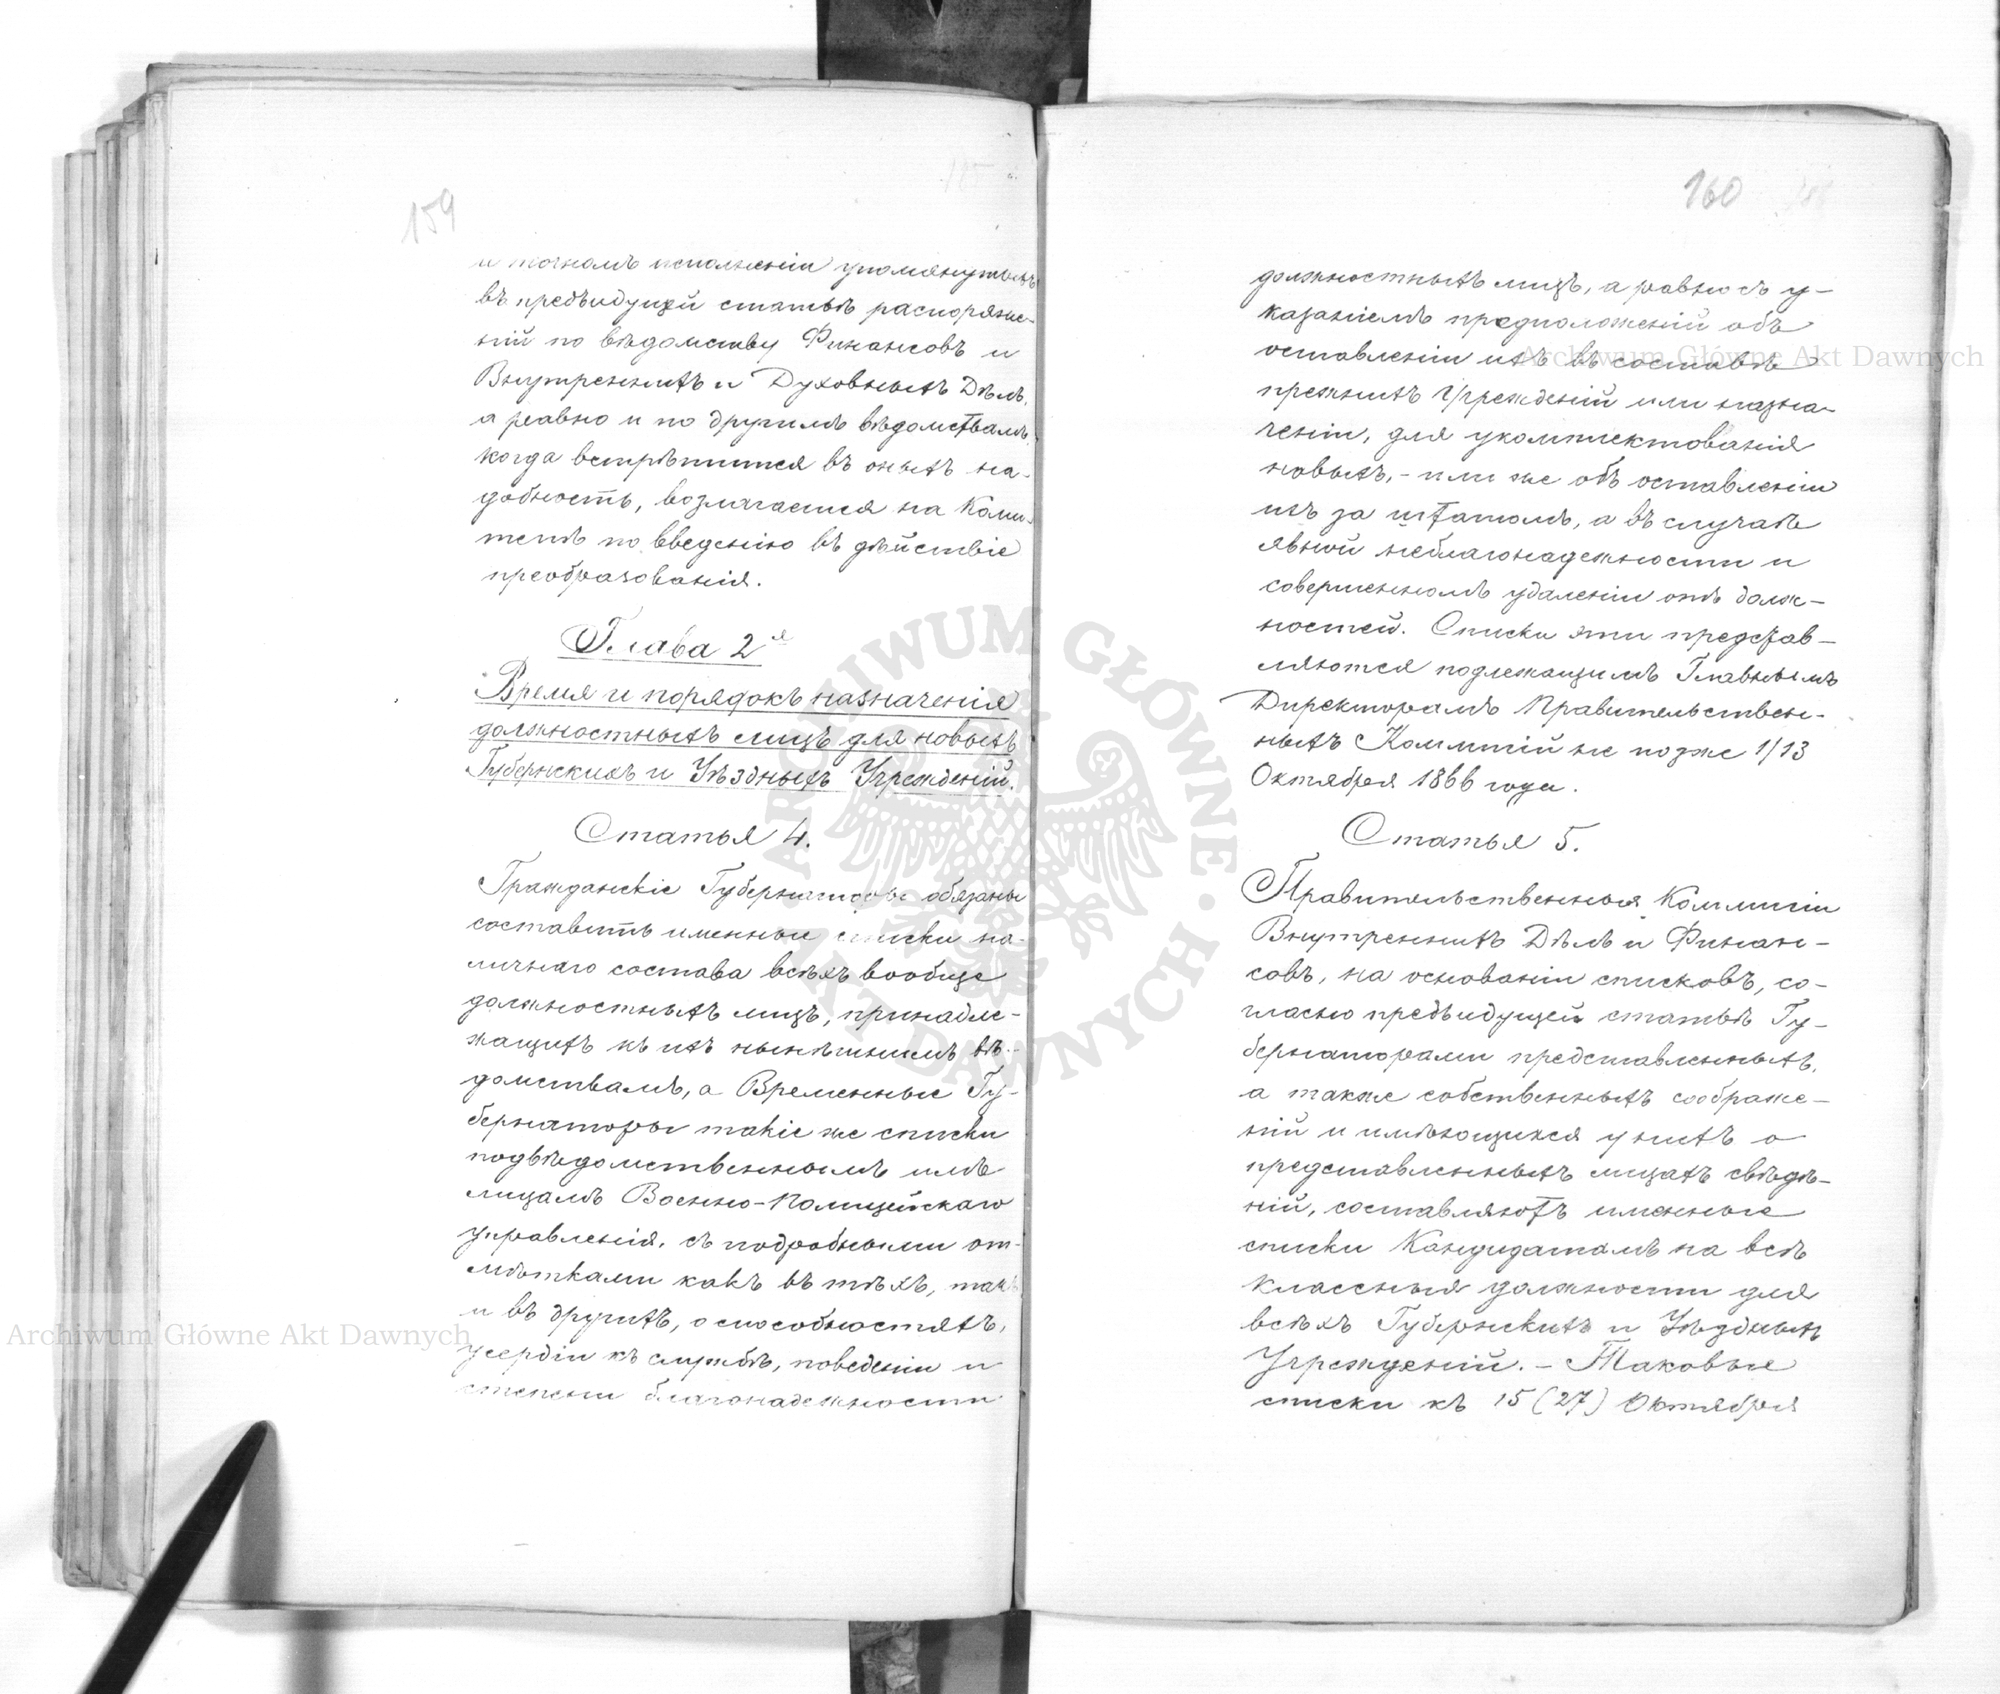 159
и точномъ исполненіи упомянутыхъ
въ предъидущей статьѣ распоряже-
ній по вѣдомству Финансовъ и
Внутреннихъ и Духовныхъ Дѣлъ,
а равно и по другимъ вѣдомствамъ,
когда встрѣтится въ оныхъ на-
добность, возлагается на Коми-
тетъ по введенію въ дѣйствіе
преобразованія.
Глава 2я
Время и порядокъ назначенія
должностныхъ лицъ для новыхъ
Губернскихъ и Уѣздныхъ Учрежденій.
Статья 4.
Гражданскіе Губернаторы обязаны
составить именные списки на-
личнаго состава всѣхъ вообще
должностныхъ лицъ, принадле-
жащихъ къ ихъ нынѣшнимъ вѣ-
домствамъ, а Временные Гу-
бернаторы такіе же списки
подвѣдомственнымъ имъ
лицамъ Военно-Полицейскаго
управленія, съ подробными от-
мѣтками какъ въ тѣхъ, такъ
и въ другихъ, о способностяхъ,
усердіи къ службѣ, поведеніи и
степени благонадежности
160
должностныхъ лицъ, а равно съ у-
казаніемъ предположеній объ
оставленіи ихъ въ составѣ
прежнихъ Учрежденій или назна-
ченіи, для укомплектованія
новыхъ, - или же объ оставленіи
ихъ за штатомъ, а въ случаѣ
явной неблагонадежности и
совершенномъ удаленіи отъ долж-
ностей. Списки эти представ-
ляются подлежащимъ Главнымъ
Директорамъ Правительствен-
ныхъ Коммисій не позже 1/13
Октября 1866 года.
Статья 5.
Правительственныя Коммисіи
Внутреннихъ Дѣлъ и Финан-
совъ, на основаніи списковъ, со-
гласно предъидущей статьѣ Гу-
бернаторами представленныхъ,
а также собственныхъ соображе-
ній и имѣющихся у нихъ о
представленныхъ лицахъ свѣдѣ-
ній, составляютъ именные
списки Кандидатамъ на всѣ
классныя должности для
всѣхъ Губернскихъ и Уѣздныхъ
Учрежденій. - Таковые
списки къ 15 (27) Октября
Archiwum Główne Akt Dawnych
Archiwum Główne Akt Dawnych
ARCHIWUM GŁÓWNE · AKT DAWNYCH ·